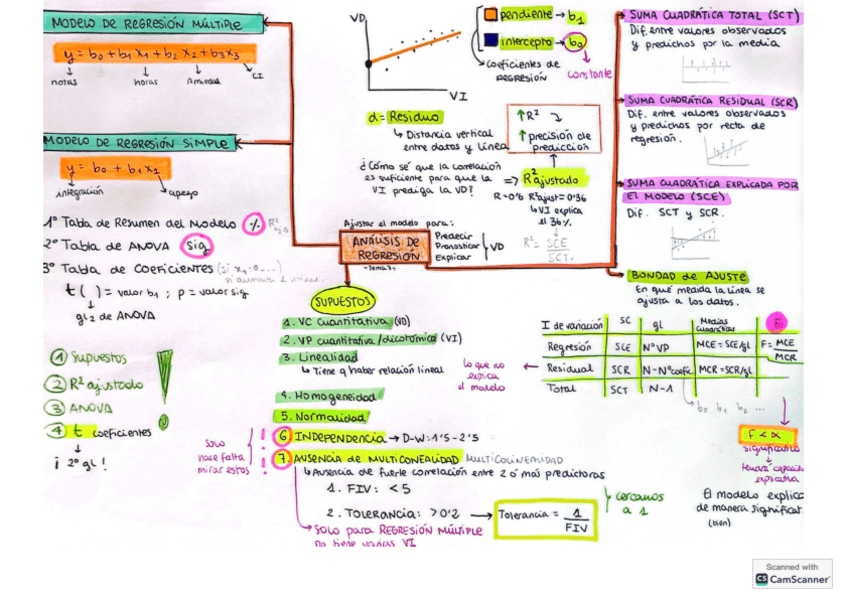 MODELO DE REGRESIÓN MÚLTIPLE
y = b0 + b1 x1 + b2 x2 + b3 x3
notas
horas
Ansiedad
CI
MODELO DE REGRESIÓN SIMPLE
y = b0 + b1 x1
integración
apego
1º Tabla de Resumen del Modelo %
2º Tabla de ANOVA Sig
3º Tabla de Coeficientes
t ( ) = valor b1 ; p = valor sig
gl2 de ANOVA
① Supuestos
② R² ajustado
③ ANOVA
④ t coeficientes
¡ 2º gl !
VD
VI
pendiente → b1
intercepto → b0
constante
Coeficientes de
REGRESIÓN
d = Residuo
↳ Distancia vertical
entre datos y línea
↑R²
↑ precisión de
predicción
¿Cómo sé que la correlación
es suficiente para que la
VI prediga la VD?
=> R² ajustado
R=0'6 R²ajust=0'36
↳ VI explica
el 36%
R² = SCE
SCT
Ajustar el modelo para:
ANÁLISIS DE
REGRESIÓN
-Tema 7-
Predecir
Pronosticar
Explicar
VD
SUPUESTOS
1. VC cuantitativa (VD)
2. VP cuantitativa/dicotómica (VI)
3. Linealidad
↳ Tiene q haber relación lineal
4. Homogeneidad
5. Normalidad
6. INDEPENDENCIA → D-W: 1'5 - 2'5
7. AUSENCIA DE MULTICONEALIDAD MULTICOLINEALIDAD
↳ Ausencia de fuerte correlación entre 2 ó más predictoras
1. FIV: < 5
2. TOLERANCIA: > 0'2 → Tolerancia = 1
FIV
cercanos
a 1
→ SOLO para REGRESIÓN MÚLTIPLE
no tiene varias VI
solo
hace falta
mirar estos
SUMA CUADRÁTICA TOTAL (SCT)
Dif. entre valores observados
y predichos por la media
SUMA CUADRÁTICA RESIDUAL (SCR)
Dif. entre valores observados
y predichos por recta de
regresión.
SUMA CUADRÁTICA EXPLICADA POR
EL MODELO (SCE)
Dif. SCT y SCR.
BONDAD DE AJUSTE
En qué medida la línea se
ajusta a los datos.
I de variación SC gl Medias cuadráticas F
Regresión SCE NºVP MCE=SCE/gl F= MCE
MCR
Residual SCR N-Nºcoefic. MCR=SCR/gl
Total SCT N-1
b0, b1, b2 ...
lo que no
explica
el modelo
F < α
significativo
tendrá capacid
explicativa
El modelo explica
de manera significat
(bien)
Scanned with
CS CamScanner